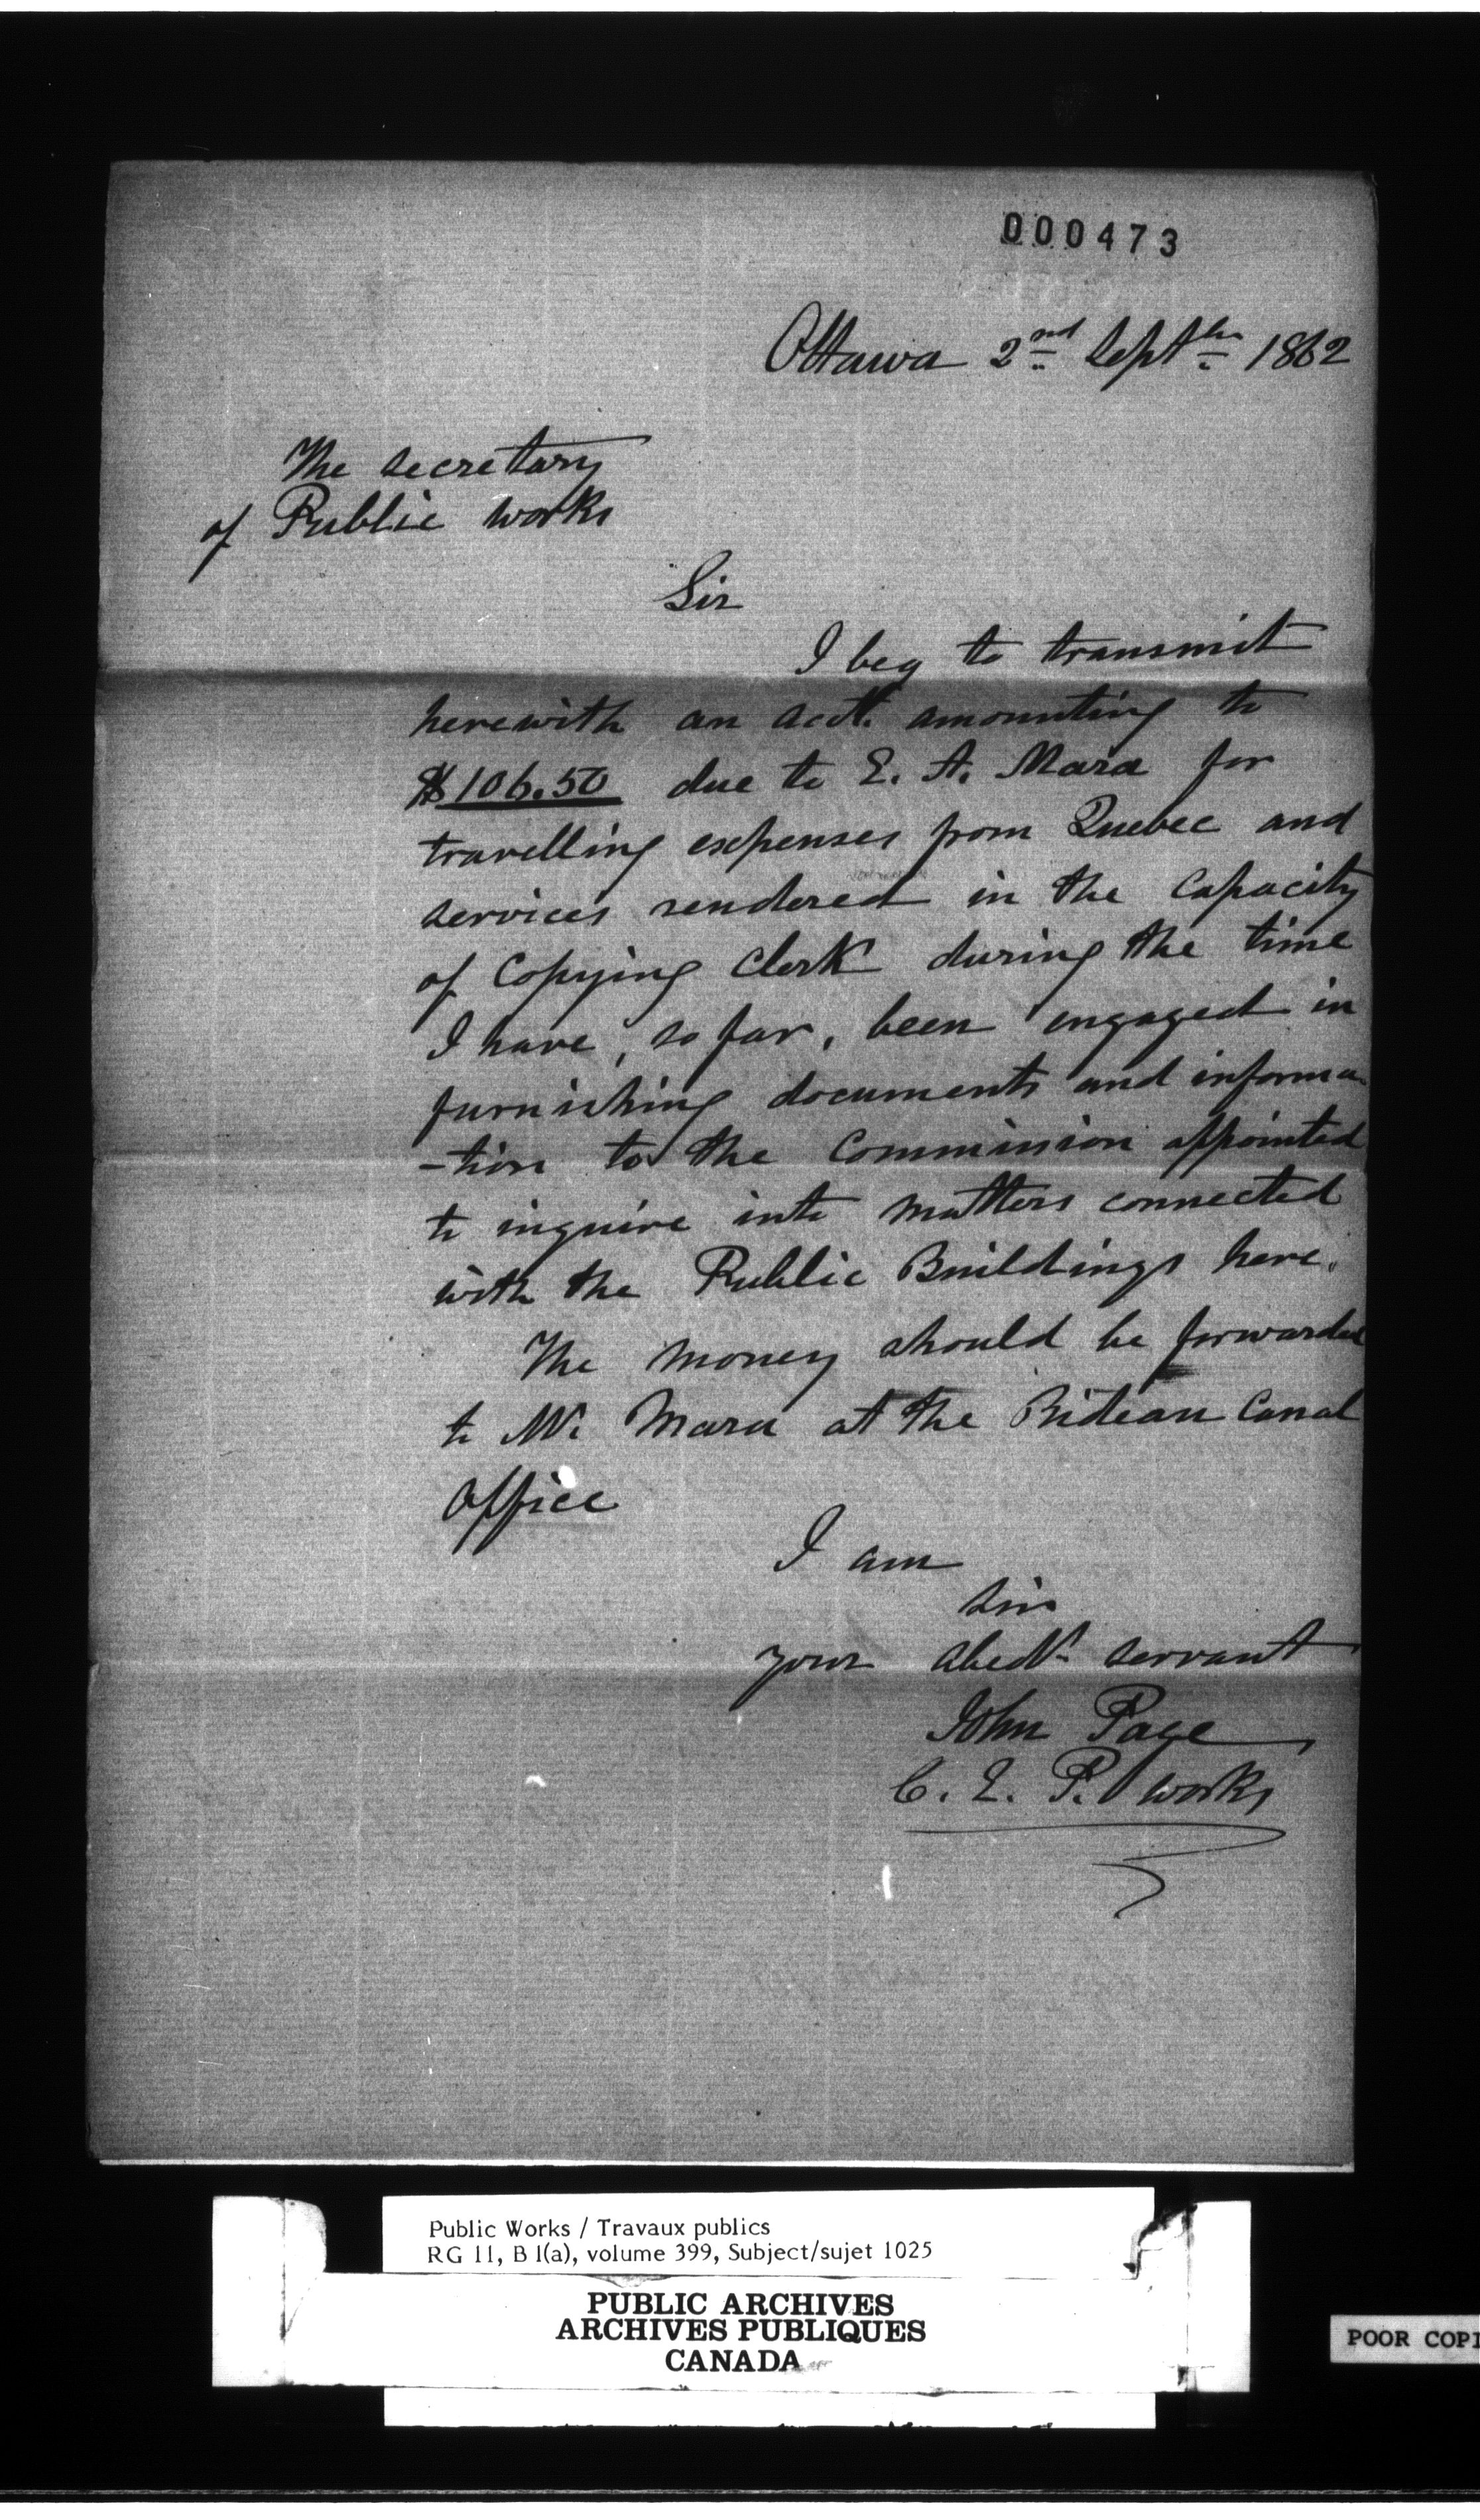 000473
Ottawa 2nd Septbr 1862
The secretary
of Public works
Sir
I beg to transmit
herewith an acct. amounting to
$106.50 due to E. A. Mara for
travelling expenses from Quebec and
services rendered in the capacity
of Copying Clerk during the time
I have, so far, been engaged in
furnishing documents and informa-
-tion to the Commission appointed
to inquire into matters connected
with the Public Buildings here.
The money should be forwarded
to Mr. Mara at the Rideau Canal
Office
I am
Sir
your obedt servant
John Page
C. E. P. works
Public Works / Travaux publics
RG 11, B 1(a), volume 399, Subject/sujet 1025
PUBLIC ARCHIVES
ARCHIVES PUBLIQUES
CANADA
POOR COPI